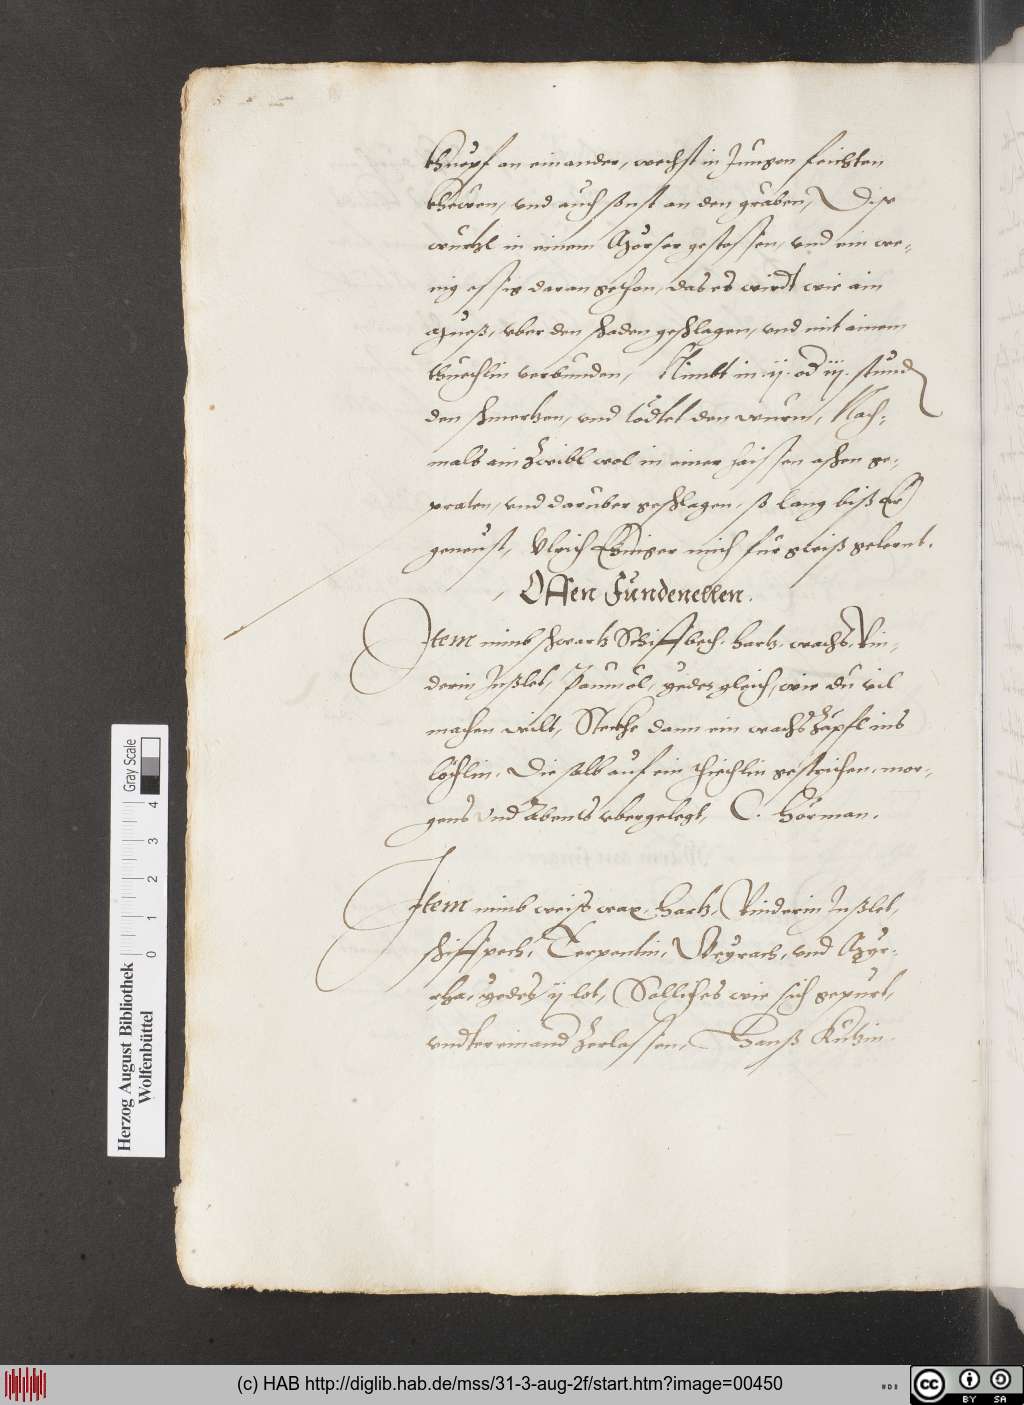 Khnöpf an einander, wechst in Jungen feichten
khewen, vnd auch sonst an den graben, Dise
wurtzl in einem Mörser gestossen, vnd ein we-
nig essig daran gethon, das es wirdt wie ain
Mueß, vber den schaden geschlagen, vnd mit ainem
thuechlin verbunden, Nimbt in .ij. od iij. stund
den schmertzen, vnd tödtet den wurm, Nach-
mals ain Zwibl wol in einer haissen aschen ge-
praten, vnd darüber geschlagen, so lang biß Er
geneust, Vlrich mich für gwiß gelernt.
Offen Fundenellen.
Item nimb schwartz Schiffbech, hartz, wachs, Rin-
derin Inßlet, Paumöl, yedes gleich, wie du vil
machen wilt, Steckhe dann ein wachs Zäpfl ins
löchlin. Die salb auf ein thiechlin gestrichen, mor-
gens vnd Abents vbergelegt, C. Hörman.
Item nimb weiß wax, hartz, Rinderin Inßlet,
schiffpech, Terpentin, Weyrach, vnd Myr-
rha, yedes ij lot, Sollches wie sich gepürt,
vndtereinand Zerlassen, Hanß Kützin.
Herzog August Bibliothek
Wolfenbüttel
0 1 2 3 4
Gray Scale
(c) HAB http://diglib.hab.de/mss/31-3-aug-2f/start.htm?image=00450
cc BY SA